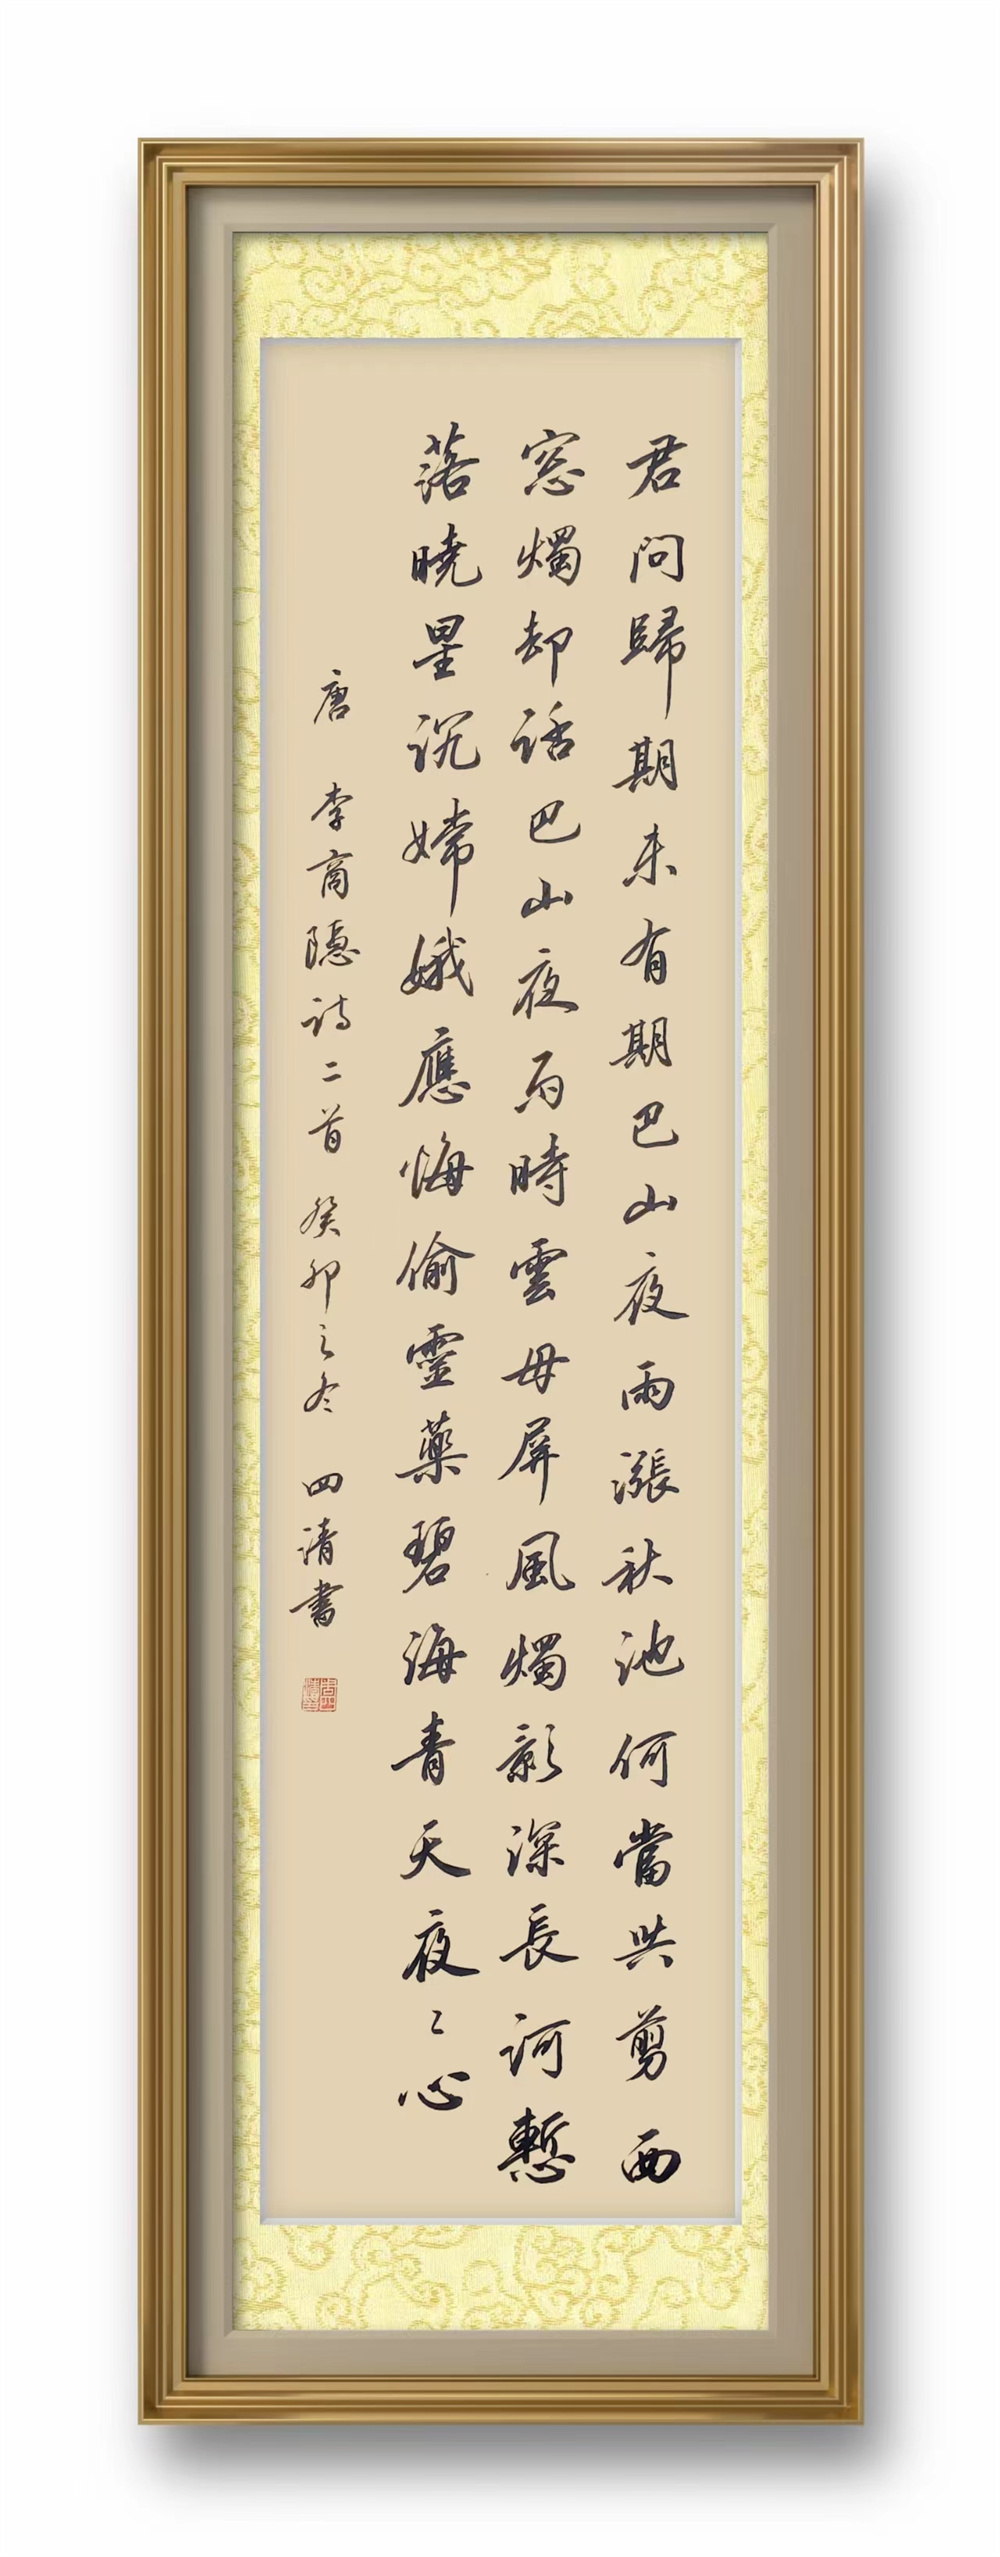 君問歸期未有期巴山夜雨漲秋池何當共剪西
窓燭却话巴山夜雨時雲母屏風燭影深長河慙
落曉星沉嫦娥應悔偷靈藥碧海青天夜〻心
唐 李商隐诗二首 癸卯之冬 四清書